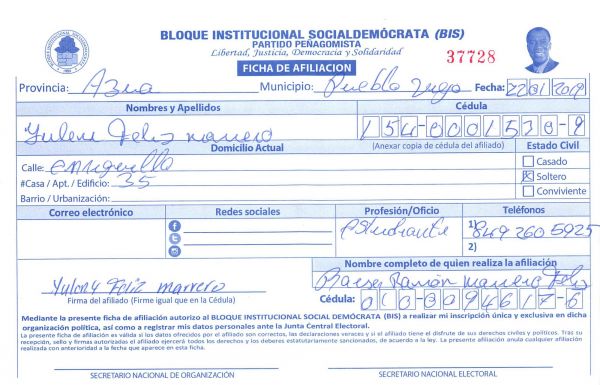 BLOQUE INSTITUCIONAL SOCIALDEMÓCRATA (BIS)
PARTIDO PEÑAGOMISTA
Libertad, Justicia, Democracia y Solidaridad
37728
FICHA DE AFILIACION
Provincia: Azua Municipio: Pueblo Viejo Fecha: 22 01 2019
Nombres y Apellidos Cédula
Yuleni Feliz marrero 154-0001530-9
Domicilio Actual (Anexar copia de cédula del afiliado) Estado Civil
Calle: enriquillo Casado
#Casa / Apt. / Edificio: 35 Soltero
Barrio / Urbanización: Conviviente
Correo electrónico Redes sociales Profesión/Oficio Teléfonos
estudiante 1) 849 260 5925
2)
Nombre completo de quien realiza la afiliación
Yuleny Feliz marrero Ramón marrero Feliz
Firma del afiliado (Firme igual que en la Cédula) Cédula: 010-0094617-6
Mediante la presente ficha de afiliación autorizo al BLOQUE INSTITUCIONAL SOCIAL DEMÓCRATA (BIS) a realizar mi inscripción única y exclusiva en dicha
organización política, así como a registrar mis datos personales ante la Junta Central Electoral.
La presente ficha de afiliación es válida si los datos ofrecidos por el afiliado son correctos, las declaraciones veraces y si el afiliado tiene el disfrute de sus derechos civiles y políticos. Tras su
recepción, sello y firmas autorizadas el afiliado ejercerá todos los derechos y los deberes estatutariamente sancionados, de acuerdo a la ley. La presente afiliación anula cualquier afiliación
realizada con anterioridad a la fecha que aparece en esta ficha.
SECRETARIO NACIONAL DE ORGANIZACIÓN SECRETARIO NACIONAL ELECTORAL